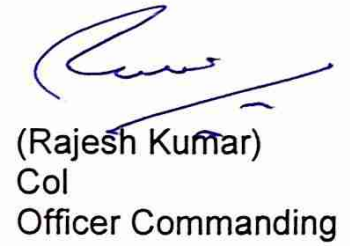 (Rajesh Kumar)
Col
Officer Commanding